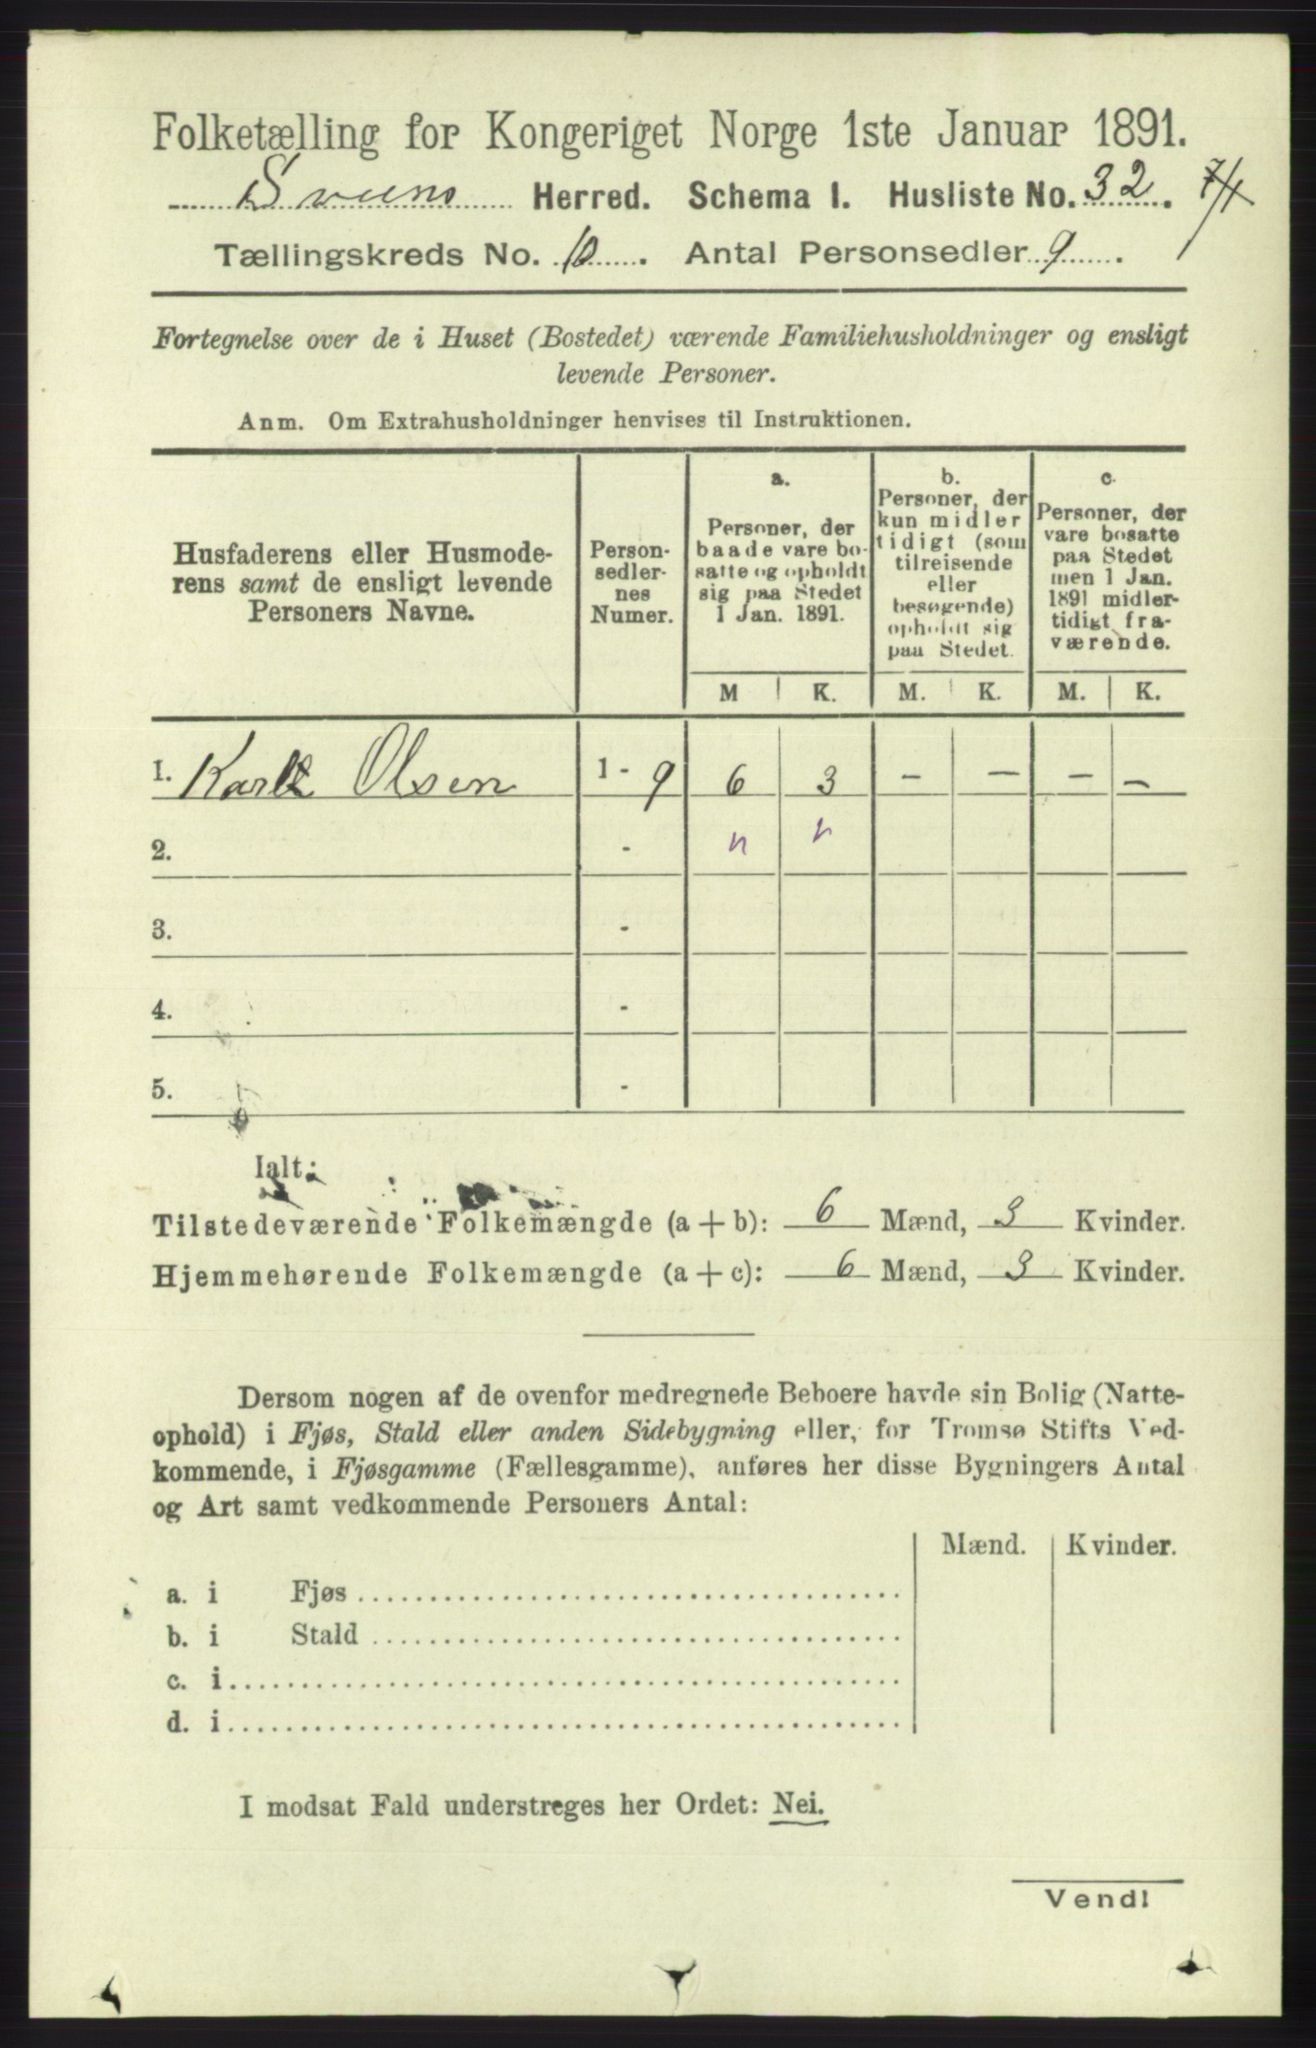 Folketælling for Kongeriget Norge 1ste Januar 1891.
Herred. Schema I. Husliste No. 32.
Tællingskreds No. 10. Antal Personsedler 9.
Fortegnelse over de i Huset (Bostedet) værende Familiehusholdninger og ensligt
levende Personer.
Anm. Om Extrahusholdninger henvises til Instruktionen.
Husfaderens eller Husmode-
rens samt de ensligt levende
Personers Navne.
Person-
sedler-
nes
Numer.
a.
Personer, der
baade vare bo-
satte og opholdt
sig paa Stedet
1 Jan. 1891.
b.
Personer, der
kun midler
tidigt (som
tilreisende
eller
besøgende)
opholdt sig
paa Stedet.
c.
Personer, der
vare bosatte
paa Stedet
men 1 Jan.
1891 midler-
tidigt fra-
værende.
M K. M. K. M. K.
1. Karl Olsen 1 - 9 6 3 - - - -
2. - n n
3. -
4. -
5. -
Ialt:
Tilstedeværende Folkemængde (a + b): 6 Mænd, 3 Kvinder.
Hjemmehørende Folkemængde (a + c): 6 Mænd, 3 Kvinder.
Dersom nogen af de ovenfor medregnede Beboere havde sin Bolig (Natte-
ophold) i Fjøs, Stald eller anden Sidebygning eller, for Tromsø Stifts Ved-
kommende, i Fjøsgamme (Fællesgamme), anføres her disse Bygningers Antal
og Art samt vedkommende Personers Antal:
Mænd. Kvinder.
a. i Fjøs
b. i Stald
c. i
d. i
I modsat Fald understreges her Ordet: Nei.
Vend!